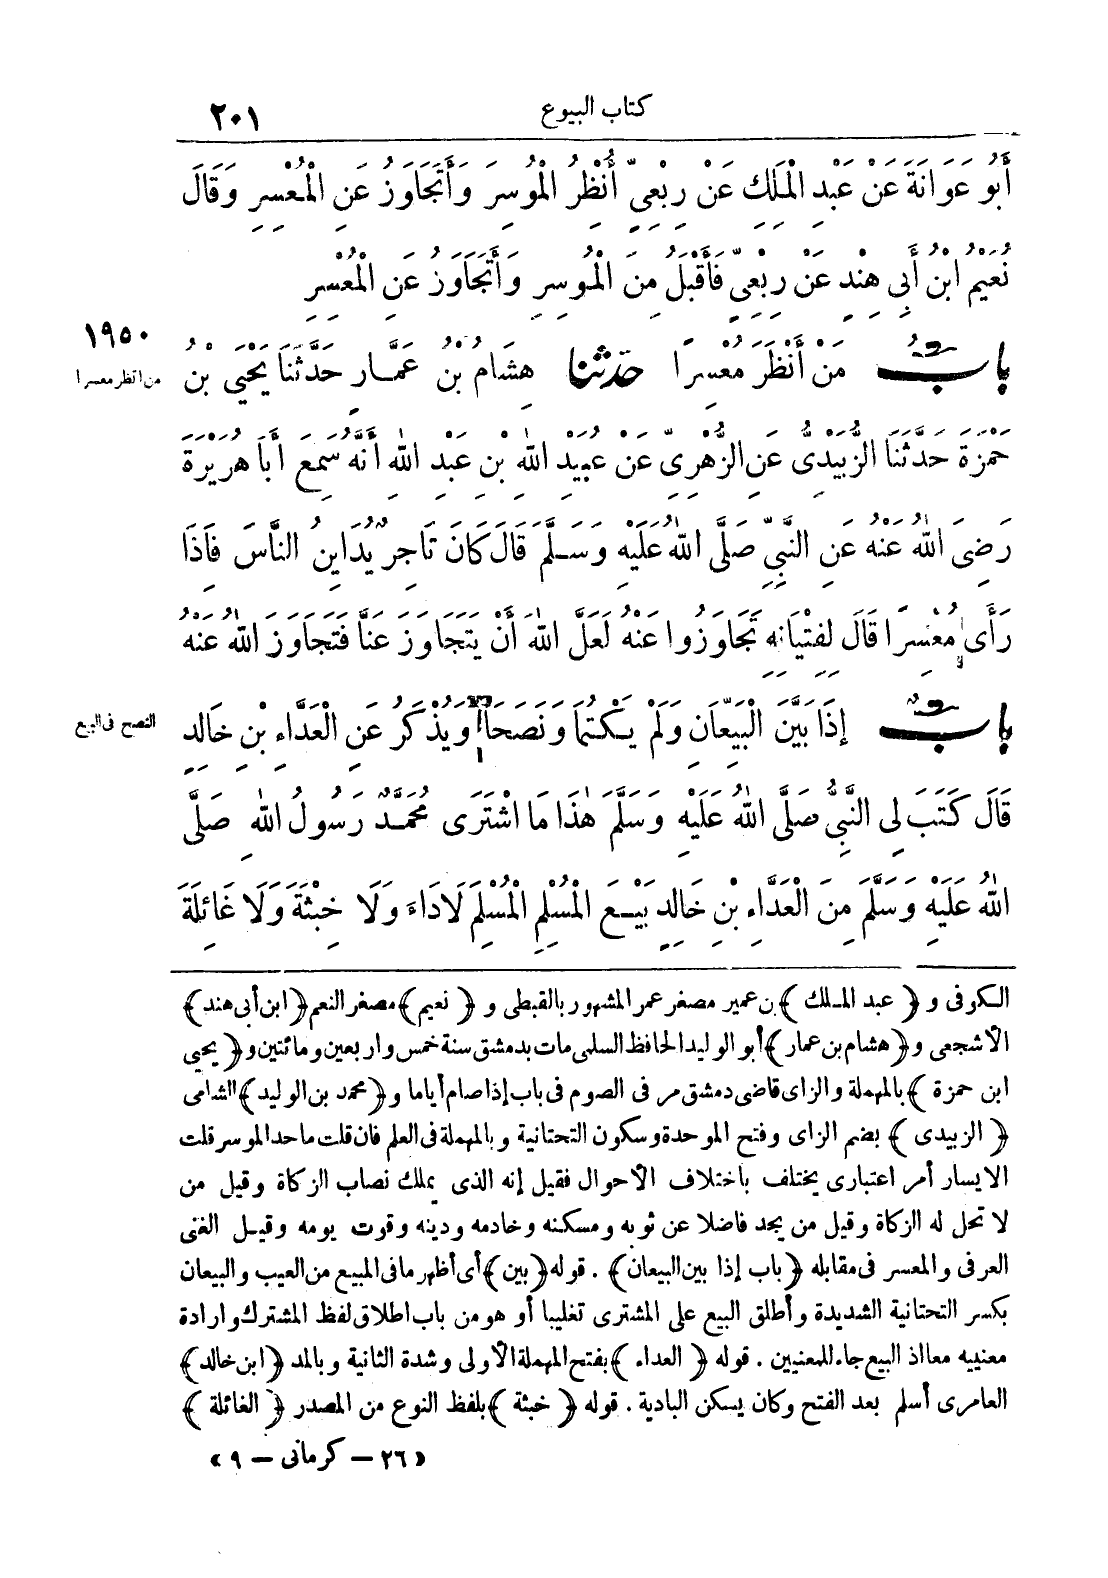 كتاب البيوع
٢٠١
أَبُو عَوَانَةَ عَنْ عَبْدِ الْمَلِكِ عَنْ رِبْعِيٍّ أُنْظِرُ الْمُوسِرَ وَأَتَجَاوَزُ عَنِ الْمُعْسِرِ وَقَالَ
نُعَيْمُ ابْنُ أَبِي هِنْدٍ عَنْ رِبْعِيٍّ فَأَقْبَلُ مِنَ الْمُوسِرِ وَأَتَجَاوَزُ عَنِ الْمُعْسِرِ
١٩٥٠
من انظر معسرا
بابُ مَنْ أَنْظَرَ مُعْسِرًا حدّثنا هِشَامُ بْنُ عَمَّارٍ حَدَّثَنَا يَحْيَى بْنُ
حَمْزَةَ حَدَّثَنَا الزُّبَيْدِىُّ عَنِ الزُّهْرِىِّ عَنْ عُبَيْدِ اللهِ بْنِ عَبْدِ اللهِ أَنَّهُ سَمِعَ أَبَا هُرَيْرَةَ
رَضِىَ اللهُ عَنْهُ عَنِ النَّبِىِّ صَلَّى اللهُ عَلَيْهِ وَسَلَّمَ قَالَ كَانَ تَاجِرٌ يُدَايِنُ النَّاسَ فَإِذَا
رَأَى مُعْسِرًا قَالَ لِفِتْيَانِهِ تَجَاوَزُوا عَنْهُ لَعَلَّ اللهَ أَنْ يَتَجَاوَزَ عَنَّا فَتَجَاوَزَ اللهُ عَنْهُ
النصح فى البيع
بابٌ إِذَا بَيَّنَ الْبَيِّعَانِ وَلَمْ يَكْتُمَا وَنَصَحَا وَيُذْكَرُ عَنِ الْعَدَّاءِ بْنِ خَالِدٍ
قَالَ كَتَبَ لِى النَّبِىُّ صَلَّى اللهُ عَلَيْهِ وَسَلَّمَ هٰذَا مَا اشْتَرَى مُحَمَّدٌ رَسُولُ اللهِ صَلَّى
اللهُ عَلَيْهِ وَسَلَّمَ مِنَ الْعَدَّاءِ بْنِ خَالِدٍ بَيْعَ الْمُسْلِمِ الْمُسْلِمَ لَا دَاءَ وَلَا خِبْثَةَ وَلَا غَائِلَةَ
الكوفى و ﴿ عبد الملك ﴾ بن عمير مصغر عمر المشهور بالقبطى و ﴿ نعيم ﴾ مصغر النعم ﴿ ابن أبى هند ﴾
الأشجعى و ﴿ هشام بن عمار ﴾ أبو الوليد الحافظ السلمى مات بدمشق سنة خمس واربعين ومائتين و ﴿ يحيى
ابن حمزة ﴾ بالمهملة والزاى قاضى دمشق مر فى الصوم فى باب إذا صام أياما و ﴿ محمد بن الوليد ﴾ الشامى
﴿ الزبيدى ﴾ بضم الزاى وفتح الموحدة وسكون التحتانية وبالمهملة فى العلم فان قلت ما حد الموسر قلت
الايسار أمر اعتبارى يختلف باختلاف الأحوال فقيل إنه الذى يملك نصاب الزكاة وقيل من
لا تحل له الزكاة وقيل من يجد فاضلا عن ثوبه ومسكنه وخادمه ودينه وقوت يومه وقيل الغنى
العرفى والمعسر فى مقابله ﴿ باب إذا بين البيعان ﴾ . قوله ﴿ بين ﴾ أى أظهر ما فى المبيع من العيب والبيعان
بكسر التحتانية الشديدة وأطلق البيع على المشترى تغليبا أو هو من باب اطلاق لفظ المشترك وارادة
معنييه معا إذ البيع جاء للمعنيين . قوله ﴿ العداء ﴾ بفتح المهملة الأولى وشدة الثانية وبالمد ﴿ ابن خالد ﴾
العامرى أسلم بعد الفتح وكان يسكن البادية . قوله ﴿ خبثة ﴾ بلفظ النوع من المصدر ﴿ الغائلة ﴾
« ٢٦ – كرمانى – ٩ »